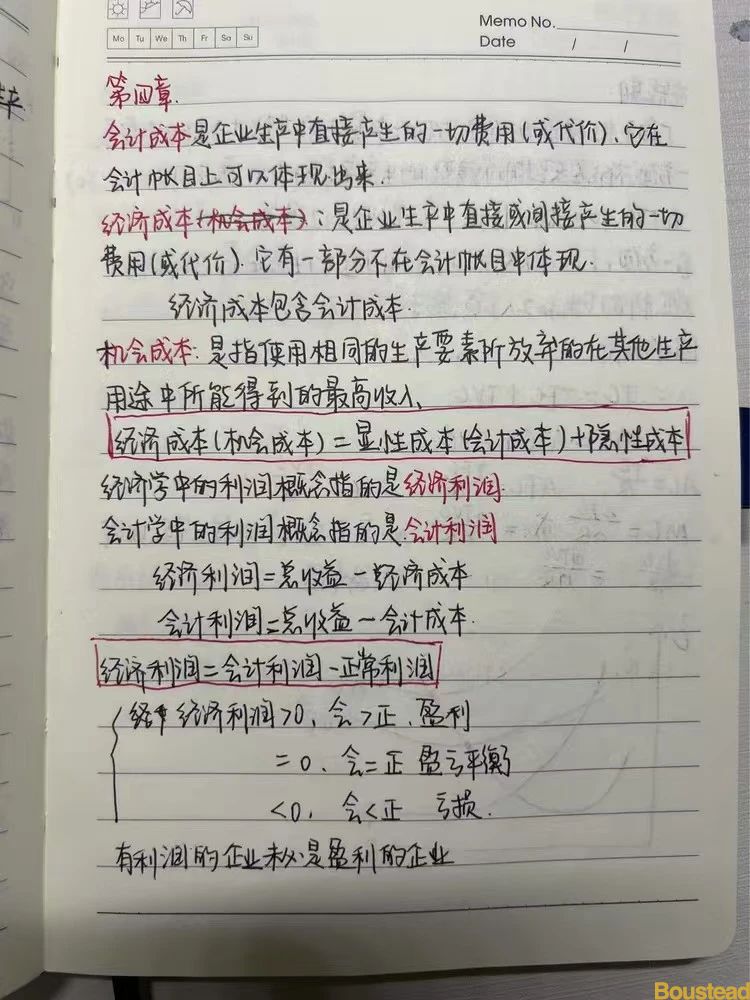 Memo No.
Mo Tu We Th Fr Sa Su
Date / /
第四章.
会计成本是企业生产中直接产生的一切费用(或代价).它在
会计帐目上可以体现出来.
经济成本(机会成本):是企业生产中直接或间接产生的一切
费用(或代价).它有一部分不在会计帐目中体现.
经济成本包含会计成本.
机会成本:是指使用相同的生产要素所放弃的在其他生产
用途中所能得到的最高收入
经济成本(机会成本)=显性成本(会计成本)+隐性成本
经济学中的利润概念指的是经济利润.
会计学中的利润概念指的是会计利润
经济利润=总收益-经济成本
会计利润=总收益-会计成本.
经济利润=会计利润-正常利润
经济利润>0、会>正、盈利
=0、会=正 盈亏平衡
<0、会<正 亏损.
有利润的企业未必是盈利的企业
Boustead